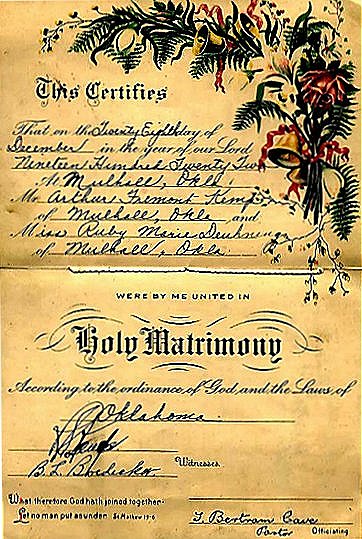 This Certifies
That on the Twenty Eighth day of
December in the year of our Lord
Nineteen Hundred Twenty
At Mulhall, Okla
Mr. Arthur Fremont
of Mulhall, Okla and
Miss Ruby Marie
of Mulhall, Okla
WERE BY ME UNITED IN
Holy Matrimony
According to the ordinance of God and the Laws, of
Oklahoma
B. L.
Witnesses
What therefore God hath joined together-
Let no man put asunder. St. Mathew 19-6
T. Bertram Cave
Pastor Officiating